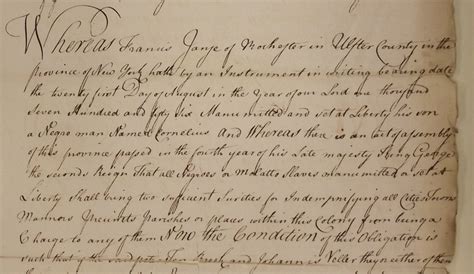 Whereas Francis Jange of Rochester in Ulster County in the
province of New York hath by an Instrument in writing bearing date
the twenty first Day of August in the Year of our Lord one thousand
Seven Hundred and fifty Six Manumitted and set at Liberty his son
a Negro man Named Cornelius And Whereas there is an Act of Assembly
of this province passed in the fourth year of his Late majesty King George
the seconds Reign That all Negroes or Molatto Slaves manumitted or set at
Liberty Shall bring two sufficient Surties for Indempnifying all Cities Towns
Mannors Precincts Parishes or places within this Colony from being a
Charge to any of them Now the Condition of this Obligation is
such that if the said and Johannis neither of them